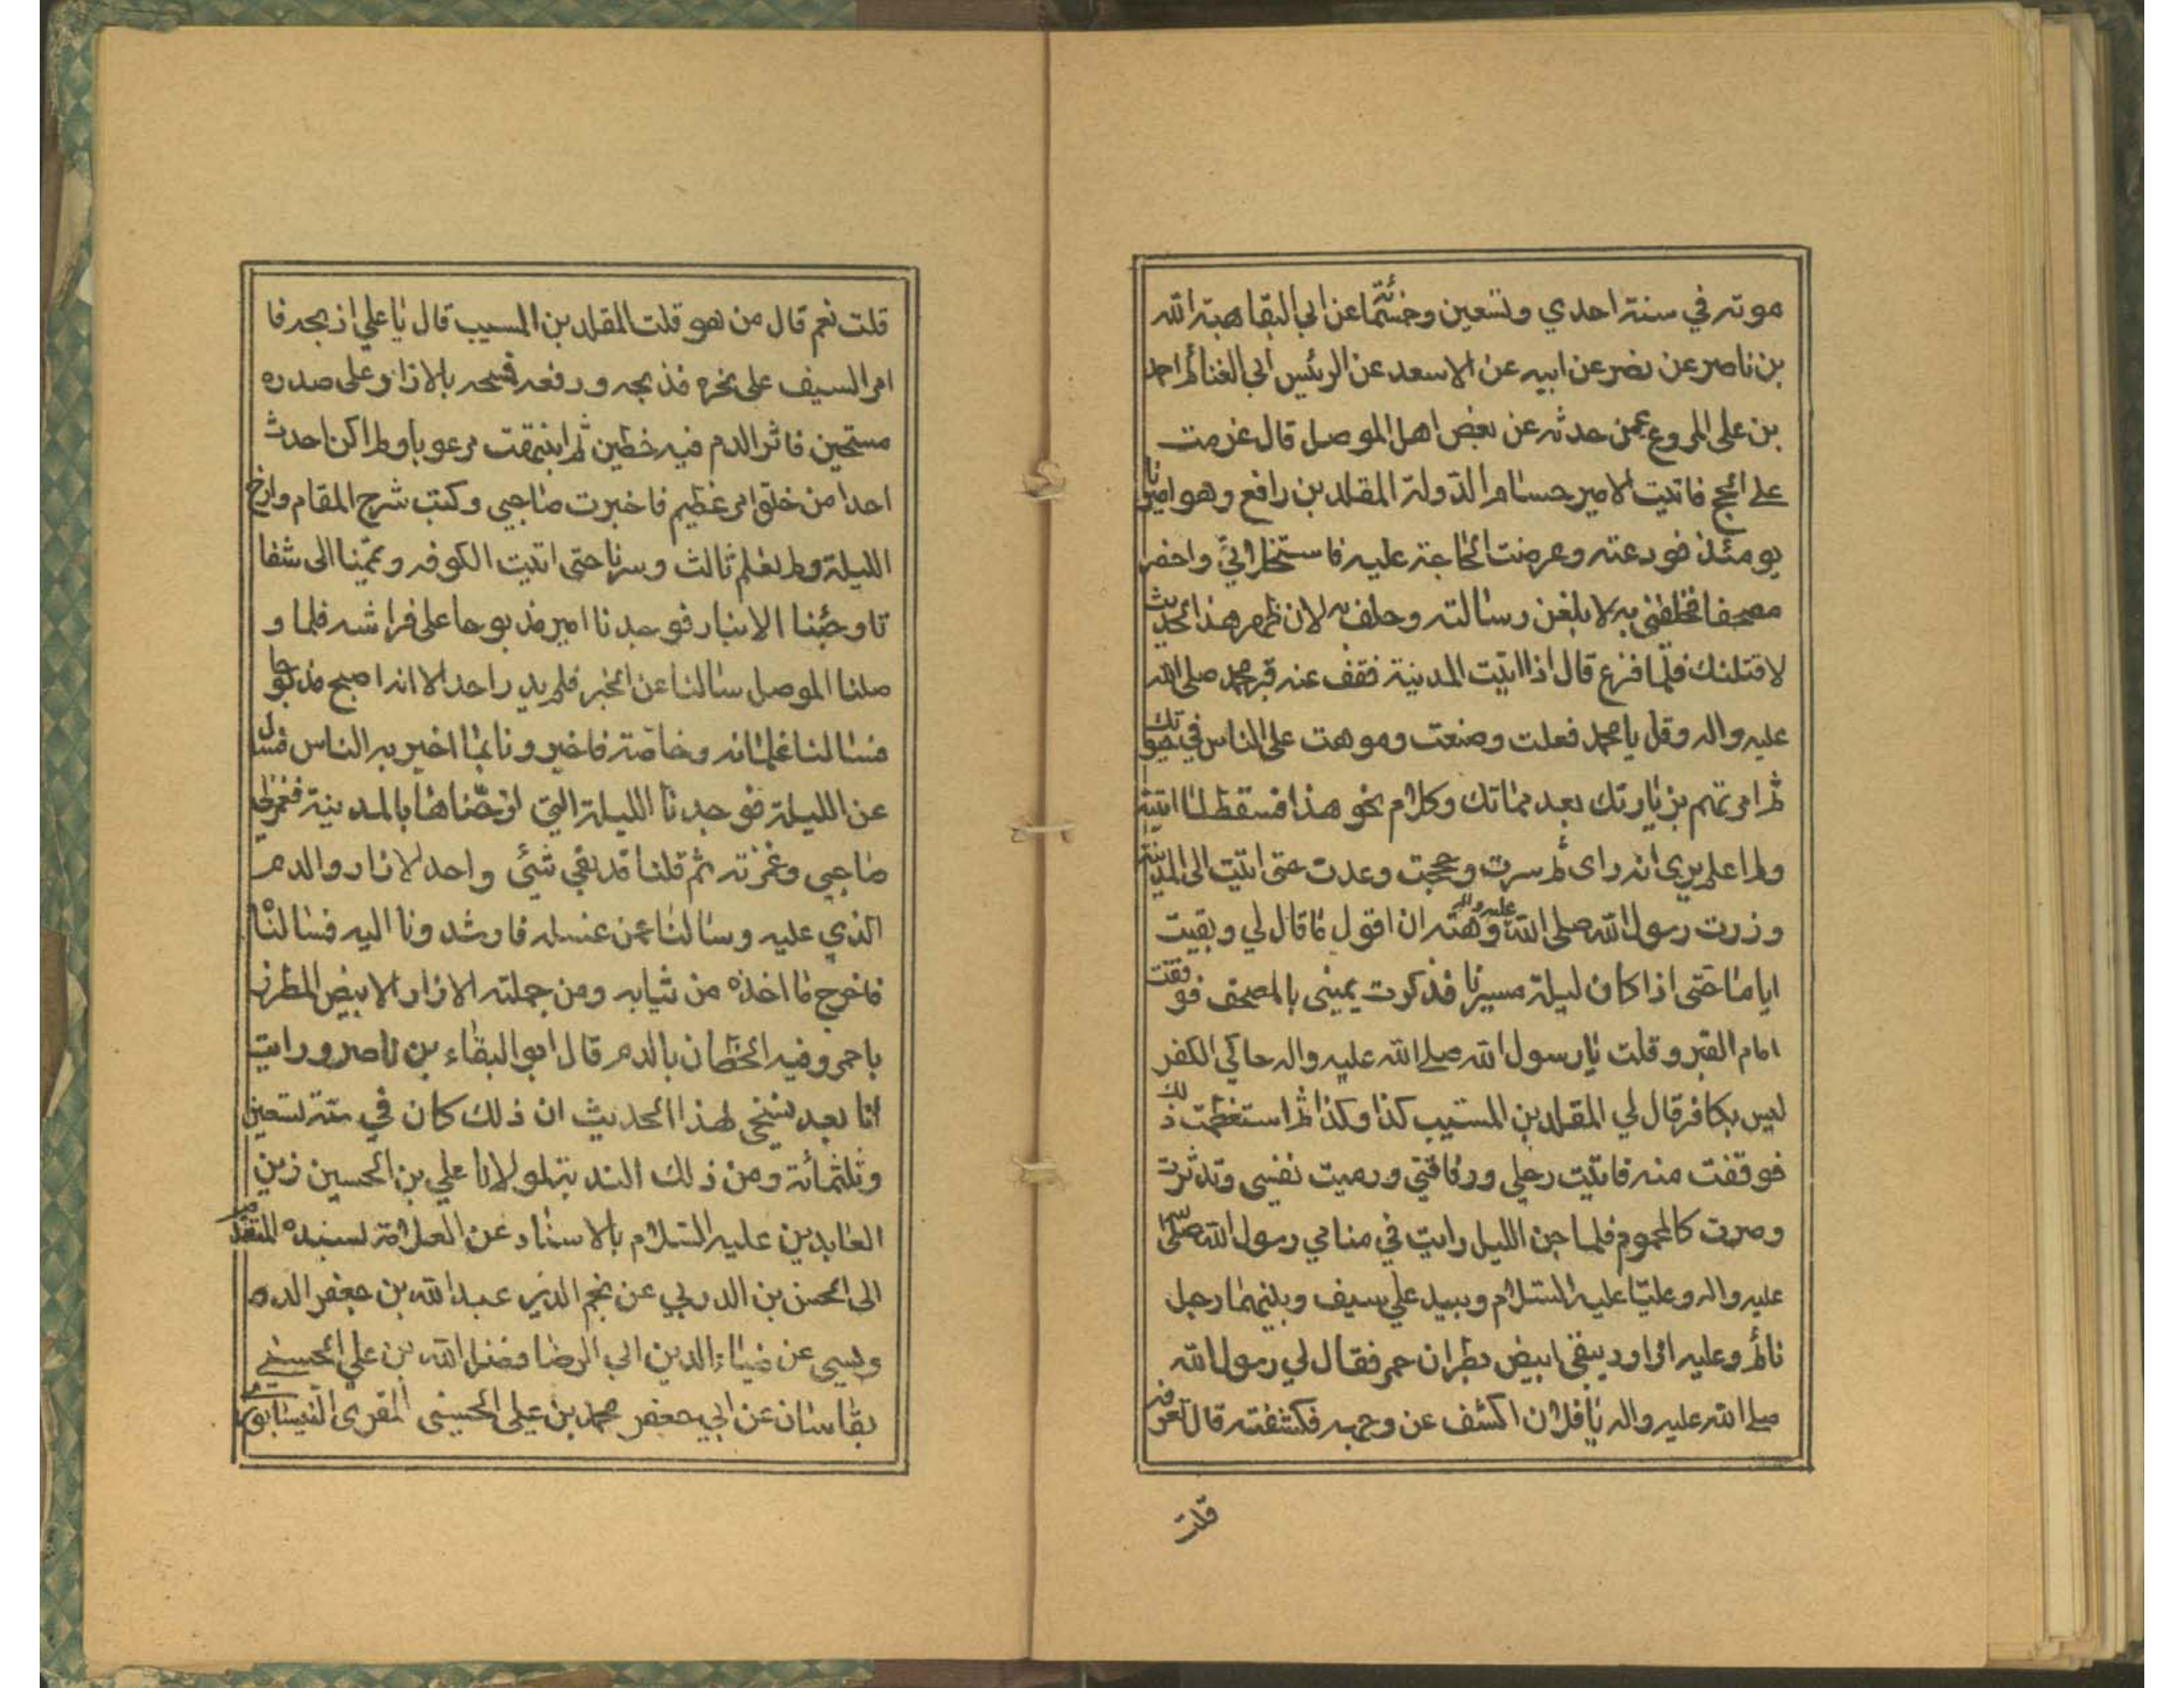 موته في سنة احدي وتسعين وخمسمائة عن ابي البقا هبة الله
بن ناصر عن نصر عن ابيه عن الاسعد عن الرئيس ابي الغنائم احمد
بن على المروع عمن حدثه عن بعض اهل الموصل قال عزمت
على الحج فاتيت الامير حسام الدولة المقلد بن رافع وهو اميرنا
يومئذ فودعته وعرضت الحاجة عليه فاستخلا بي واحضر
مصحفا فحلفني به لابلغن رسالته وحلف به لان ظهر هذا الحديث
لاقتلنك فلما فزع قال اذا اتيت المدينة فقف عند قبر محمد صلى الله
عليه واله وقل يا محمد فعلت وصنعت وموهت على الناس في حيوتك
ثم امرتهم بزيارتك بعد مماتك وكلام نحو هذا فسقط لما اتيته
ولم اعلم يرى انه راى ثم سرت وحججت وعدت حتى اتيت الى المدينة
وزرت رسول الله صلى الله عليه واله وهته ان اقول ما قال لي وبقيت
اياما حتى اذا كان ليلة مسيرنا فذكرت يميني بالمصحف فوقفت
امام القبر وقلت يا رسول الله صلى الله عليه واله حاكي الكفر
ليس بكافر قال لي المقلد بن المسيب كذا وكذا ثم استعظمت ذلك
فوقفت منه فاتيت رحلي ورفاقتي ورميت نفسي وتدثرت
وصرت كالمحموم فلما جن الليل رايت في منامي رسول الله صلى الله
عليه واله وعليا عليه السلام وبيد علي سيف وبينهما رجل
نائم وعليه ازار ديبقي ابيض بطران حمر فقال لي رسول الله
صلى الله عليه واله يا فلان اكشف عن وجهه فكشفته قال تعرفه
قلت
قلت نعم قال من هو قلت المقلد بن المسيب قال يا علي اذبحه فا
مر السيف على نحره فذبحه ورفعه فمسحه بالازار وعلى صدره
مستحين فاثر الدم فيه خطين ثم انتبهت مرعوبا ولم اكن احدث
احدا من خلق امر عظيم فاخبرت صاحبي وكتب شرح المقام وارخ
الليلة ولم يعلم ثالث وسرنا حتى اتيت الكوفه وعمّينا الى شفا
تا وجئنا الانبار فوجدنا امير مذبوحا على فراشه فلما و
صلنا الموصل سالنا عن الخبر فلم يدر احد الا انه اصبح مذبوحا
فسالنا غلمانه وخاصة فاخبرونا بما اخبر به الناس فسال
عن الليلة فوجدنا الليلة التي ارّخناها بالمدينة فغمزني
صاحبي وغمزته ثم قلنا قد بقي شئى واحد الازار والدم
الذي عليه وسالنا عمن غسله فارشدونا اليه فسالنا
فاخرج ما اخذه من ثيابه ومن جملته الازار الابيض المطرف
باحمر وفيه الخطان بالدم قال ابو البقاء بن ناصر ورايت
انا بعد نسخي لهذا الحديث ان ذلك كان في سنة تسعين
وثلثمائة ومن ذلك الندبة لمولانا علي بن الحسين زين
العابدين عليه السلام بالاسناد عن العلامة بسنده المتقدم
الى الحسن بن الدربي عن نجم الدين عبد الله بن جعفر الدو
ويسي عن ضياء الدين ابي الرضا فضل الله بن علي الحسني
بقاسان عن ابي جعفر محمد بن علي الحسيني المقري النيسابوري